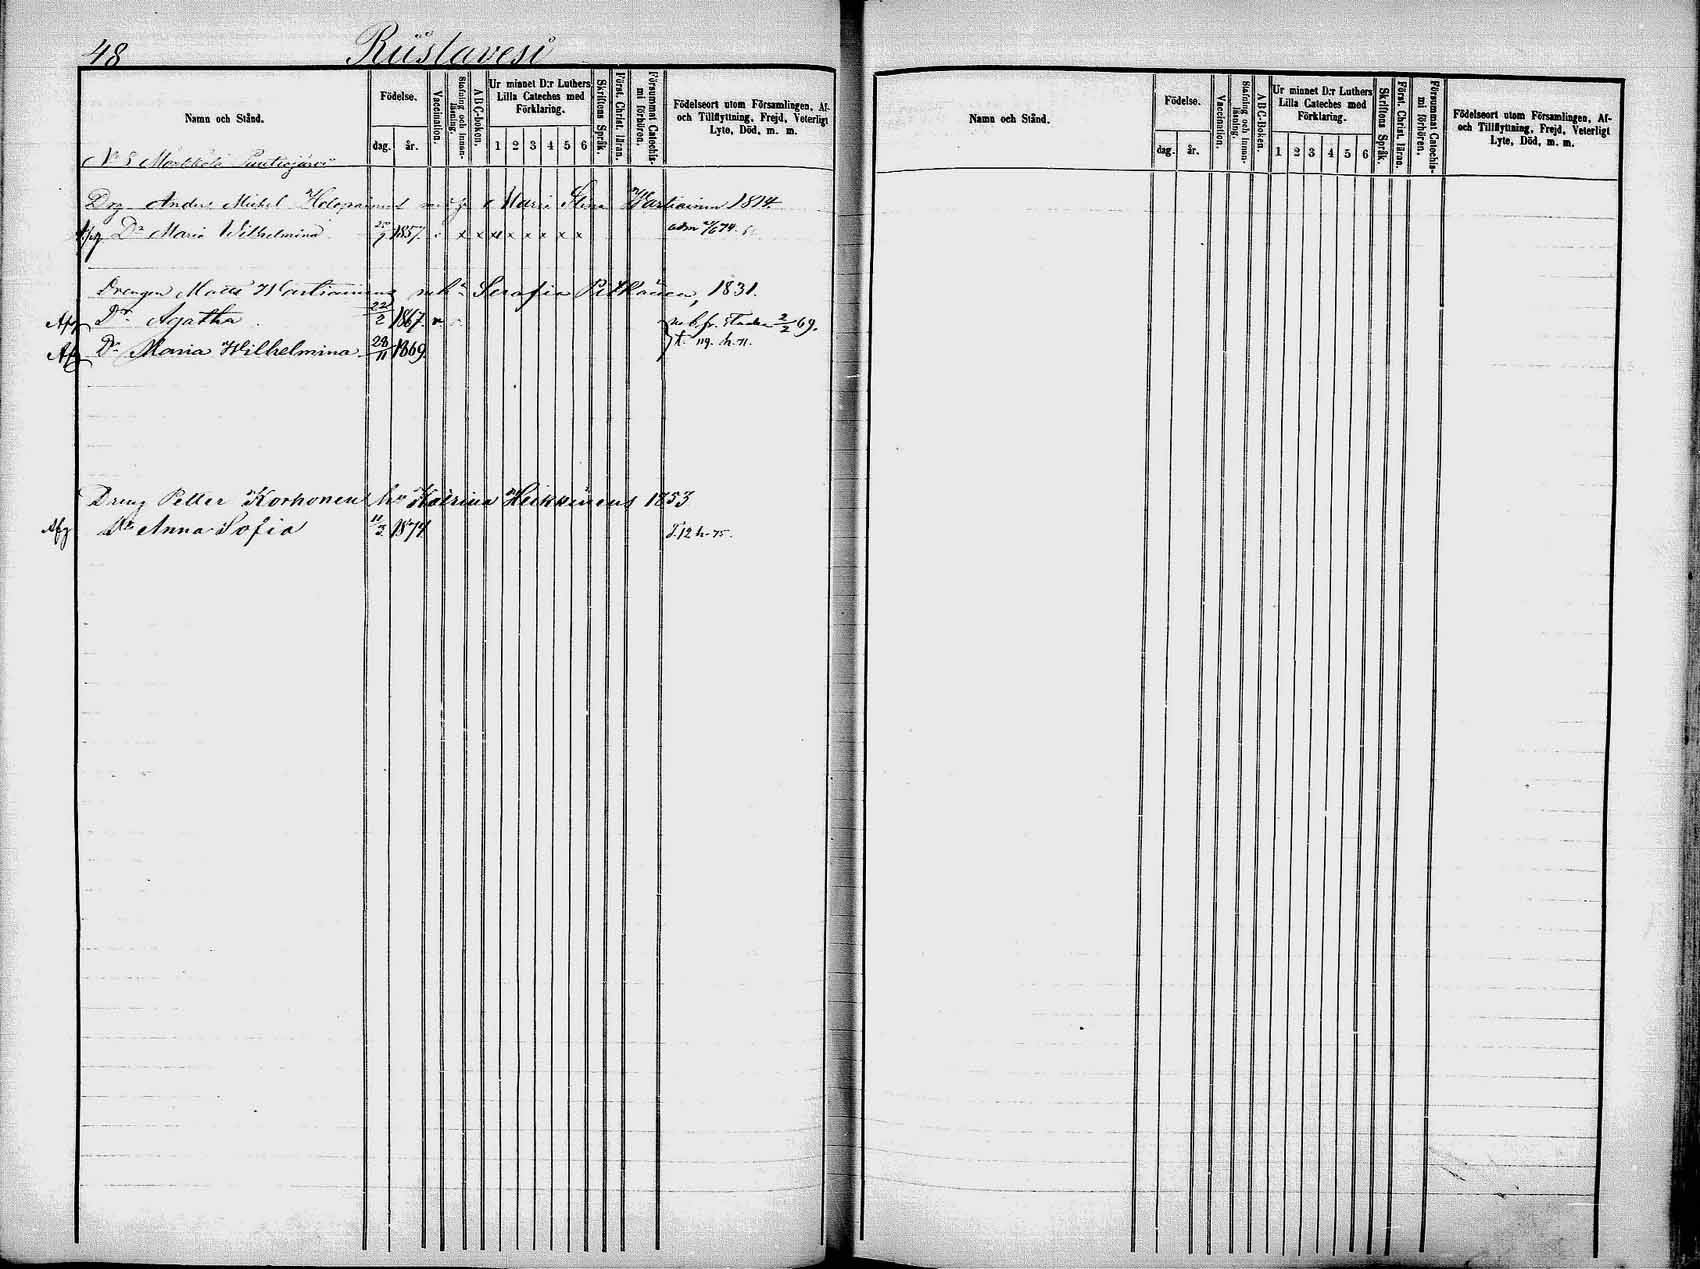 48 Riistavesi
Namn och Stånd.
Födelse.
dag. år.
Vaccination.
Stafning och innan-läsning.
A B C-boken.
Ur minnet D:r Luthers Lilla Cateches med Förklaring.
1 2 3 4 5 6
Skriftens Språk.
Först. Christ. läran.
Försummat Catechis-mi förhören.
Födelseort utom Församlingen, Af- och Tillflyttning, Frejd, Veterligt Lyte, Död, m. m.
N:o 8
Drg Anders Michel Holopainens Maria Stina Wartiainen 1814
Afg Dr Maria Wilhelmina 1857. x x x x x x x x
Drengen Matts Wartiainens Serafia Pitkänen, 1831.
Afg Dr Agatha. 22/2 1867. 2/2 69.
Afg Dr Maria Wilhelmina 28/11 1869.
Dreng Petter Korhonens Katrina Heikkinens 1853
Afg Dr Anna Sofia 11/3 1874.
Namn och Stånd.
Födelse.
dag. år.
Vaccination.
Stafning och innan-läsning.
A B C-Boken.
Ur minnet D:r Luthers Lilla Cateches med Förklaring.
1 2 3 4 5 6
Skriftens Språk.
Först. Christ. läran.
Försummat Catechis-mi förhören.
Födelseort utom Församlingen, Af- och Tillflyttning, Frejd, Veterligt Lyte, Död, m. m.